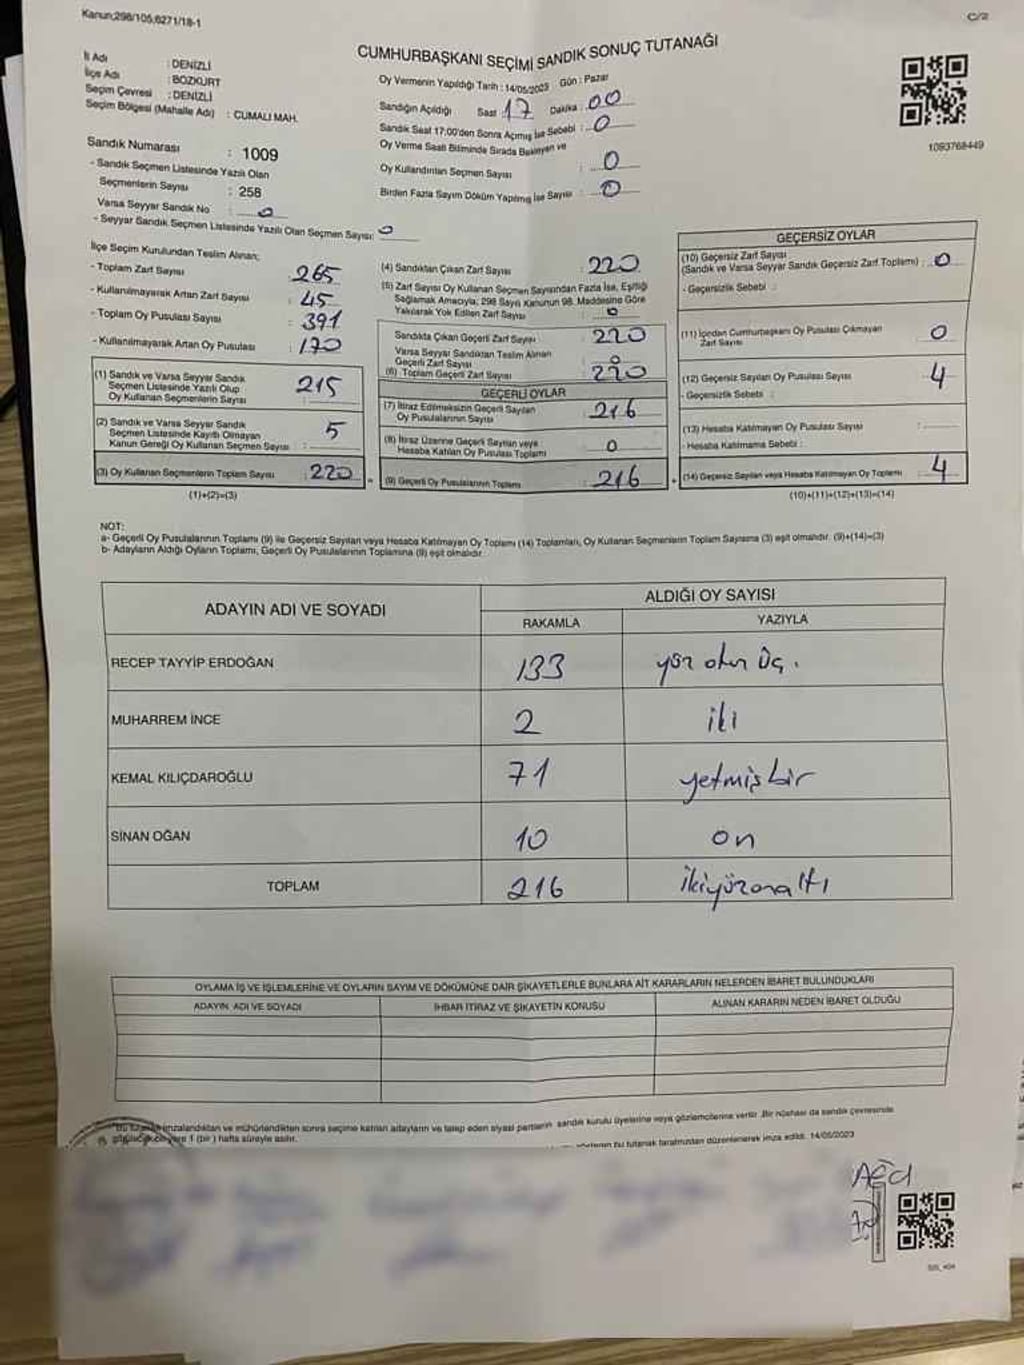 Kanun;298/105,6271/18-1
C/2
CUMHURBAŞKANI SEÇİMİ SANDIK SONUÇ TUTANAĞI
İl Adı : DENİZLİ
İlçe Adı : BOZKURT
Seçim Çevresi : DENİZLİ
Seçim Bölgesi (Mahalle Adı) : CUMALI MAH.
Sandık Numarası : 1009
- Sandık Seçmen Listesinde Yazılı Olan
Seçmenlerin Sayısı : 258
Varsa Seyyar Sandık No : 0
- Seyyar Sandık Seçmen Listesinde Yazılı Olan Seçmen Sayısı: 0
Oy Vermenin Yapıldığı Tarih : 14/05/2023 Gün : Pazar
Sandığın Açıldığı Saat 17 Dakika : 00
Sandık Saat 17:00'den Sonra Açılmış İse Sebebi : 0
Oy Verme Saati Bitiminde Sırada Bekleyen ve
Oy Kullandırılan Seçmen Sayısı : 0
Birden Fazla Sayım Döküm Yapılmış İse Sayısı : 0
1093768449
İlçe Seçim Kurulundan Teslim Alınan;
- Toplam Zarf Sayısı : 265
- Kullanılmayarak Artan Zarf Sayısı : 45
- Toplam Oy Pusulası Sayısı : 391
- Kullanılmayarak Artan Oy Pusulası : 170
(1) Sandık ve Varsa Seyyar Sandık
Seçmen Listesinde Yazılı Olup
Oy Kullanan Seçmenlerin Sayısı : 215
(2) Sandık ve Varsa Seyyar Sandık
Seçmen Listesinde Kayıtlı Olmayan
Kanun Gereği Oy Kullanan Seçmen Sayısı : 5
(3) Oy Kullanan Seçmenlerin Toplam Sayısı : 220
(1)+(2)=(3)
(4) Sandıktan Çıkan Zarf Sayısı : 220
(5) Zarf Sayısı Oy Kullanan Seçmen Sayısından Fazla İse, Eşitliği
Sağlamak Amacıyla; 298 Sayılı Kanunun 98. Maddesine Göre
Yakılarak Yok Edilen Zarf Sayısı : 0
Sandıkta Çıkan Geçerli Zarf Sayısı : 220
Varsa Seyyar Sandıktan Teslim Alınan
Geçerli Zarf Sayısı : 0
(6) Toplam Geçerli Zarf Sayısı : 220
GEÇERLİ OYLAR
(7) İtiraz Edilmeksizin Geçerli Sayılan
Oy Pusulalarının Sayısı : 216
(8) İtiraz Üzerine Geçerli Sayılan veya
Hesaba Katılan Oy Pusulası Toplamı : 0
(9) Geçerli Oy Pusulalarının Toplamı : 216
GEÇERSİZ OYLAR
(10) Geçersiz Zarf Sayısı
(Sandık ve Varsa Seyyar Sandık Geçersiz Zarf Toplamı) : 0
- Geçersizlik Sebebi :
(11) İçinden Cumhurbaşkanı Oy Pusulası Çıkmayan
Zarf Sayısı : 0
(12) Geçersiz Sayılan Oy Pusulası Sayısı : 4
- Geçersizlik Sebebi :
(13) Hesaba Katılmayan Oy Pusulası Sayısı :
- Hesaba Katılmama Sebebi :
(14) Geçersiz Sayılan veya Hesaba Katılmayan Oy Toplamı : 4
(10)+(11)+(12)+(13)=(14)
NOT:
a- Geçerli Oy Pusulalarının Toplamı (9) ile Geçersiz Sayılan veya Hesaba Katılmayan Oy Toplamı (14) Toplamları, Oy Kullanan Seçmenlerin Toplam Sayısına (3) eşit olmalıdır. (9)+(14)=(3)
b- Adayların Aldığı Oyların Toplamı, Geçerli Oy Pusulalarının Toplamına (9) eşit olmalıdır.
ADAYIN ADI VE SOYADI
ALDIĞI OY SAYISI
RAKAMLA YAZIYLA
RECEP TAYYİP ERDOĞAN 133 yüz otuz üç.
MUHARREM İNCE 2 iki
KEMAL KILIÇDAROĞLU 71 yetmişbir
SİNAN OĞAN 10 on
TOPLAM 216 ikiyüzonaltı
OYLAMA İŞ VE İŞLEMLERİNE VE OYLARIN SAYIM VE DÖKÜMÜNE DAİR ŞİKAYETLERLE BUNLARA AİT KARARLARIN NELERDEN İBARET BULUNDUKLARI
ADAYIN ADI VE SOYADI İHBAR İTİRAZ VE ŞİKAYETİN KONUSU ALINAN KARARIN NEDEN İBARET OLDUĞU
imzalandıktan ve mühürlendikten sonra seçime katılan adayların ve talep eden siyasi partilerin sandık kurulu üyelerine veya gözlemcilerine verilir. Bir nüshası da sandık çevresinde
1 (bir) hafta süreyle asılır.
bu tutanak tarafımızdan düzenlenerek imza edildi. 14/05/2023